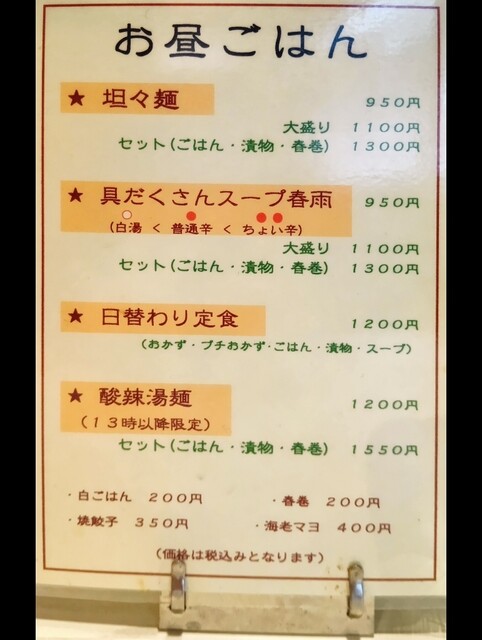 お昼ごはん
★ 坦々麺 950円
大盛り 1100円
セット(ごはん・漬物・春巻) 1300円
★ 具だくさんスープ春雨 950円
(白湯 < 普通辛 < ちょい辛)
大盛り 1100円
セット(ごはん・漬物・春巻) 1300円
★ 日替わり定食 1200円
(おかず・プチおかず・ごはん・漬物・スープ)
★ 酸辣湯麺 1200円
(13時以降限定)
セット(ごはん・漬物・春巻) 1550円
・白ごはん 200円 ・春巻 200円
・焼餃子 350円 ・海老マヨ 400円
(価格は税込みとなります)